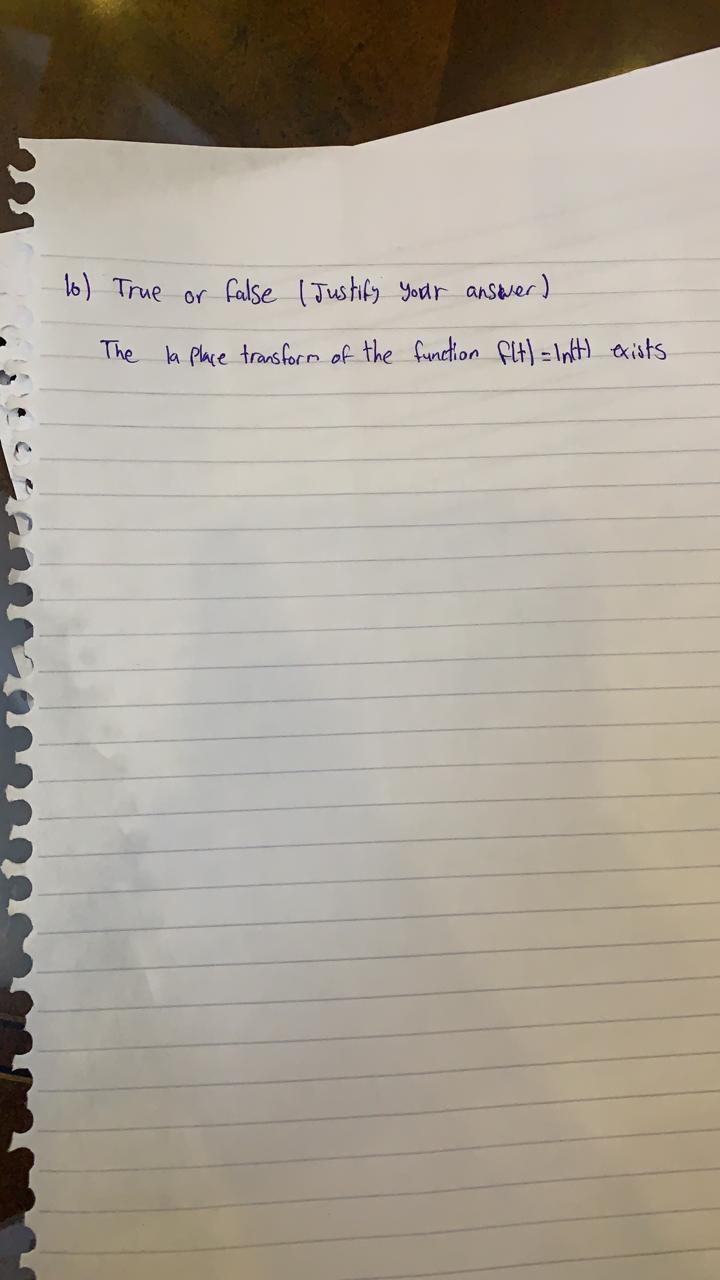 16) True or false (Justify your answer)
The la place transform of the function f(t) = ln(t) exists